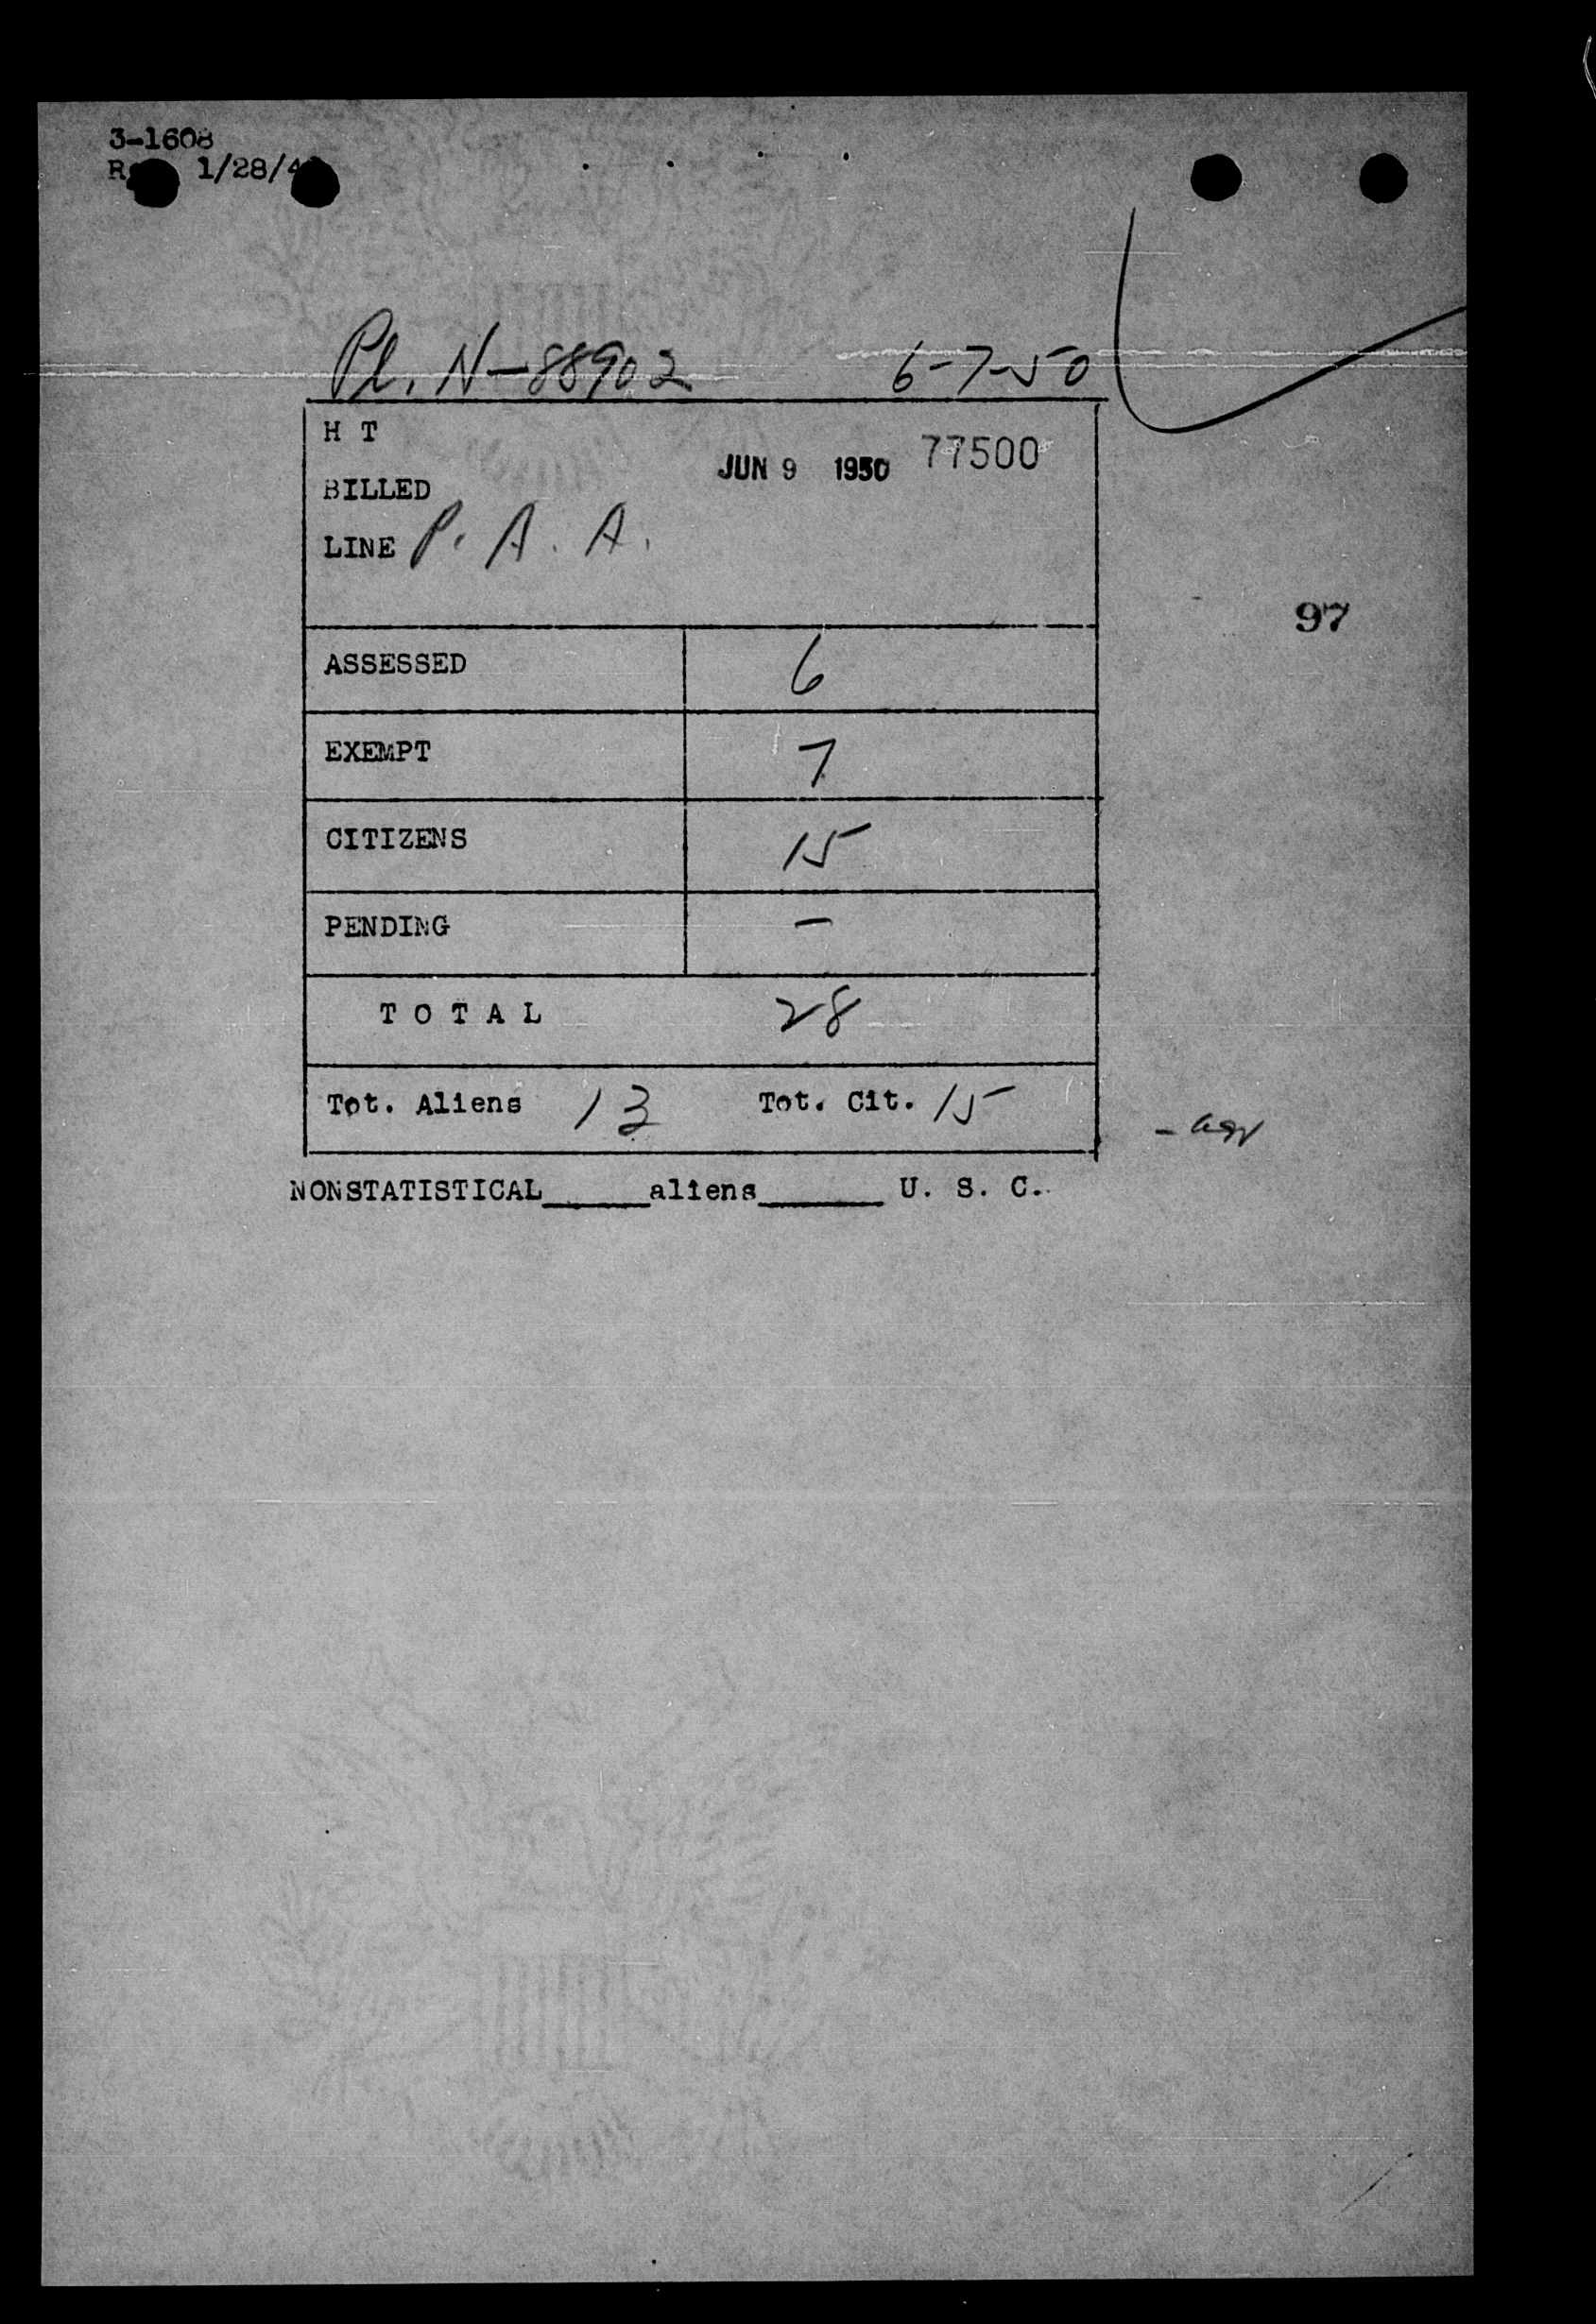 3-1608
1/28/4
Pl. N-88902 6-7-50
H T
JUN 9 1950 77500
BILLED
LINE P. A. A.
97
ASSESSED 6
EXEMPT 7
CITIZENS 15
PENDING -
T O T A L 28
Tot. Aliens 13 Tot. Cit. 15
NONSTATISTICAL______aliens_______ U. S. C.